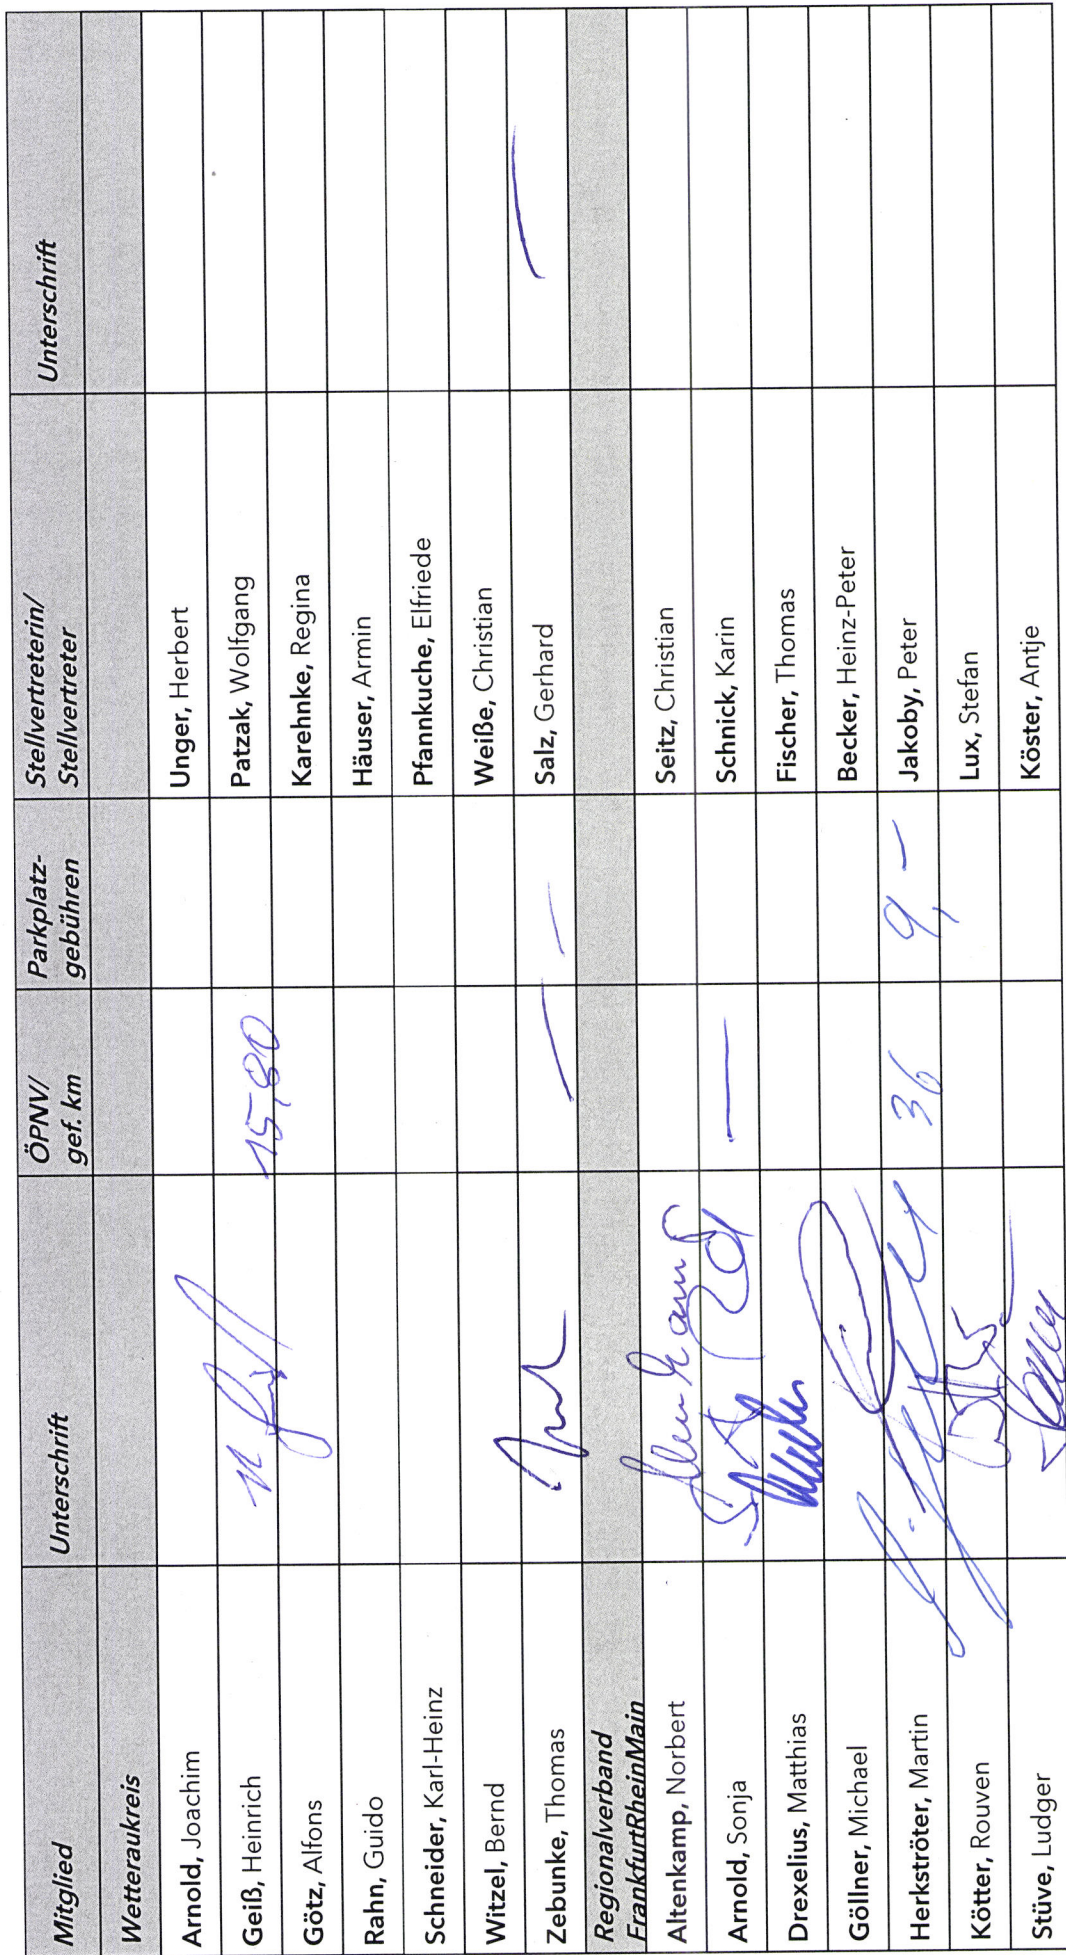 Mitglied Unterschrift ÖPNV/ gef. km Parkplatz-gebühren Stellvertreterin/ Stellvertreter Unterschrift
Wetteraukreis
Arnold, Joachim Unger, Herbert
Geiß, Heinrich 15,80 Patzak, Wolfgang
Götz, Alfons Karehnke, Regina
Rahn, Guido Häuser, Armin
Schneider, Karl-Heinz Pfannkuche, Elfriede
Witzel, Bernd Weiße, Christian
Zebunke, Thomas — — Salz, Gerhard —
Regionalverband
FrankfurtRheinMain
Altenkamp, Norbert Seitz, Christian
Arnold, Sonja — Schnick, Karin
Drexelius, Matthias Fischer, Thomas
Göllner, Michael Becker, Heinz-Peter
Herkströter, Martin 36 9,- Jakoby, Peter
Kötter, Rouven Lux, Stefan
Stüve, Ludger Köster, Antje